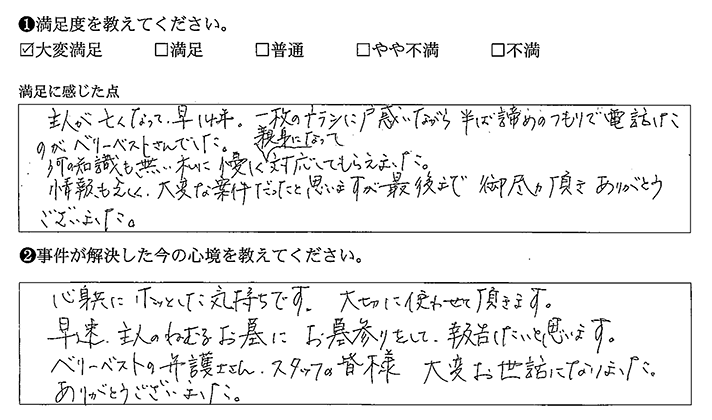 ❶満足度を教えてください。
☑大変満足 □満足 □普通 □やや不満 □不満
満足に感じた点
主人が亡くなって、早14年。一枚のチラシに戸惑いながら半ば諦めのつもりで電話したのがベリーベストさんでした。
何の知識も無い私に優しく親身になって対応してもらえました。
情報も乏しく、大変な案件だったと思いますが最後まで御尽力頂きありがとう
ございました。
❷事件が解決した今の心境を教えてください。
心身共にホッとした気持ちです。大切に使わせて頂きます。
早速、主人のねむるお墓にお墓参りをして、報告したいと思います。
ベリーベストの弁護士さん、スタッフの皆様 大変お世話になりました。
ありがとうございました。